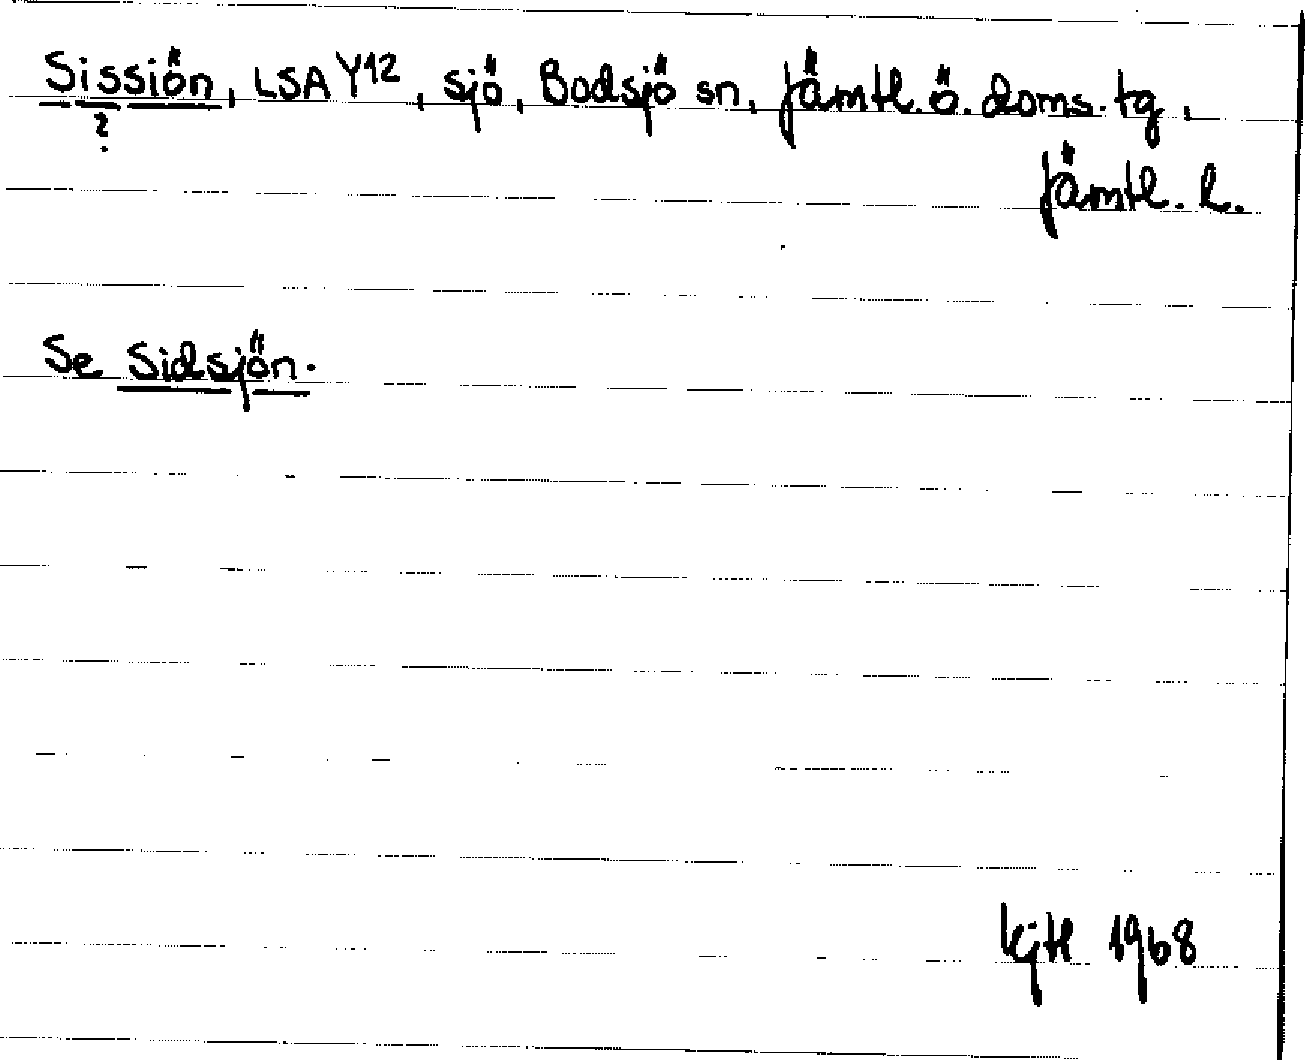 Sissiön, LSA Y12, sjö, Bodsjö sn, Jämtl. ö. doms. tg,
?
Jämtl. l.
Se Sidsjön.
1968